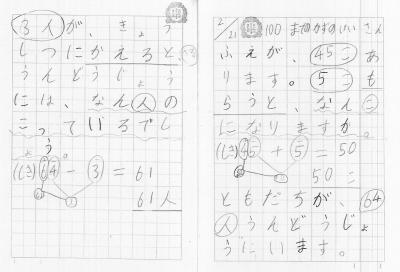 2/21 100までのかずのけいさん
ふえが、45こあ
ります。5こも
らうと、なんこ
になりますか。
(しき)45+5=50
50こ
ともだちが、64
人うんどうじょ
うにいます。
3人が、きょう
しつにかえると、
うんどうじょう
には、なん人の
こっているでし
ょう。
(しき)64-3=61
61人